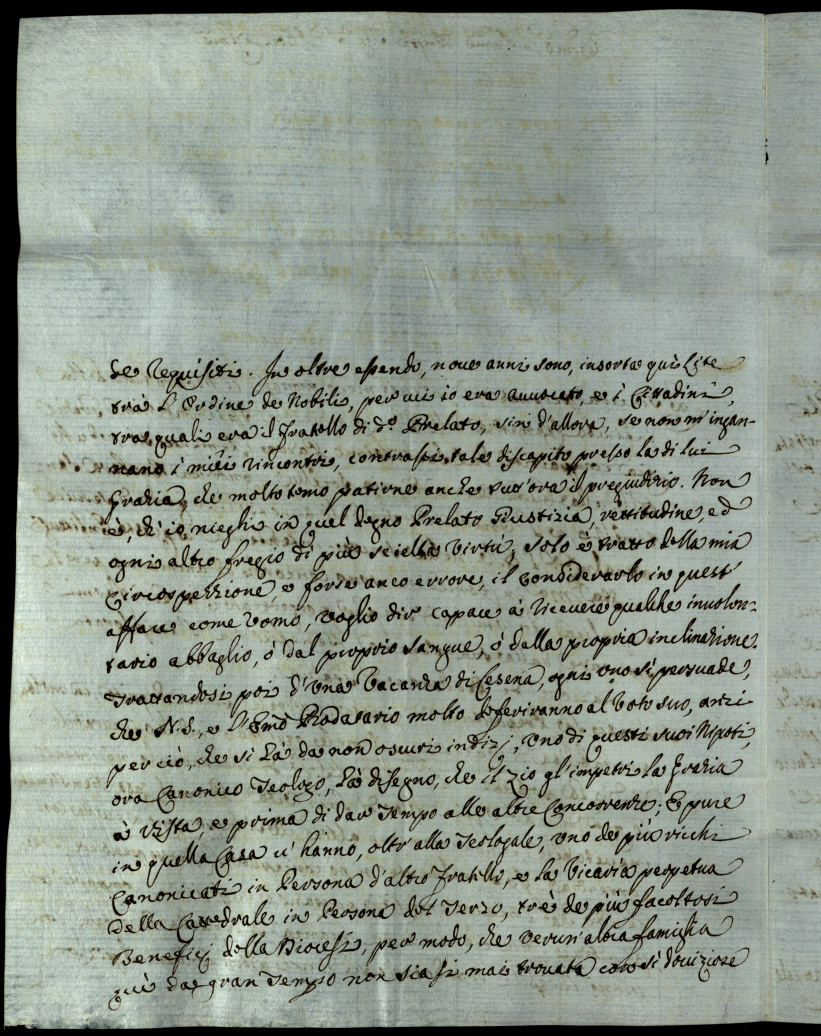 de requisiti. In oltre essendo, nove anni sono, insorta quì Lite
trà L'Ordine de Nobili, per cui io era Avvocato, e i Cittadini,
tra quali era il Fratello di d.º Prelato, sin d'allora, se non m'ingan-
nano i miei rincontri, contrassi tale discapito presso la di lui
Grazia, che molto temo patirne anche tutt'ora il pregiudizio. Non
è, ch'io nieghi in quel degno Prelato Giustizia, rettitudine, ed
ogni altro fregio di più scielta Virtù; solo è tratto della mia
Circospezzione, e forse anco errore, il considerarlo in quest'
affare come Uomo, voglio dir capace à ricevere qualche involon-
tario abbaglio, ò dal proprio sangue, ò dalla propria inclinazione.
Trattandosi poi d'una Vacanza di Cesena, ogni uno si persuade,
che N.S., e l'Emõ Prodatario molto deferiranno al Voto suo, anzi
perciò, che si hà da non oscuri indizj, uno di questi suoi Nipoti,
ora Canonico Teologo, hà disegno, che il Zio gl'impetri la Grazia
à vista, e prima di dar Tempo alle altre Concorrenze; E pure
in quella Casa v'hanno, oltr'alla Teologale, uno de più ricchi
Canonicati in Persona d'altro Fratello, e la Vicaria perpetua
della Cattedrale in Persona del Terzo, trè de più facoltosi
Beneficj della Diocesi, per modo, che verun'altra famiglia
quì da gran Tempo non siasi mai trovata con sì doviziose